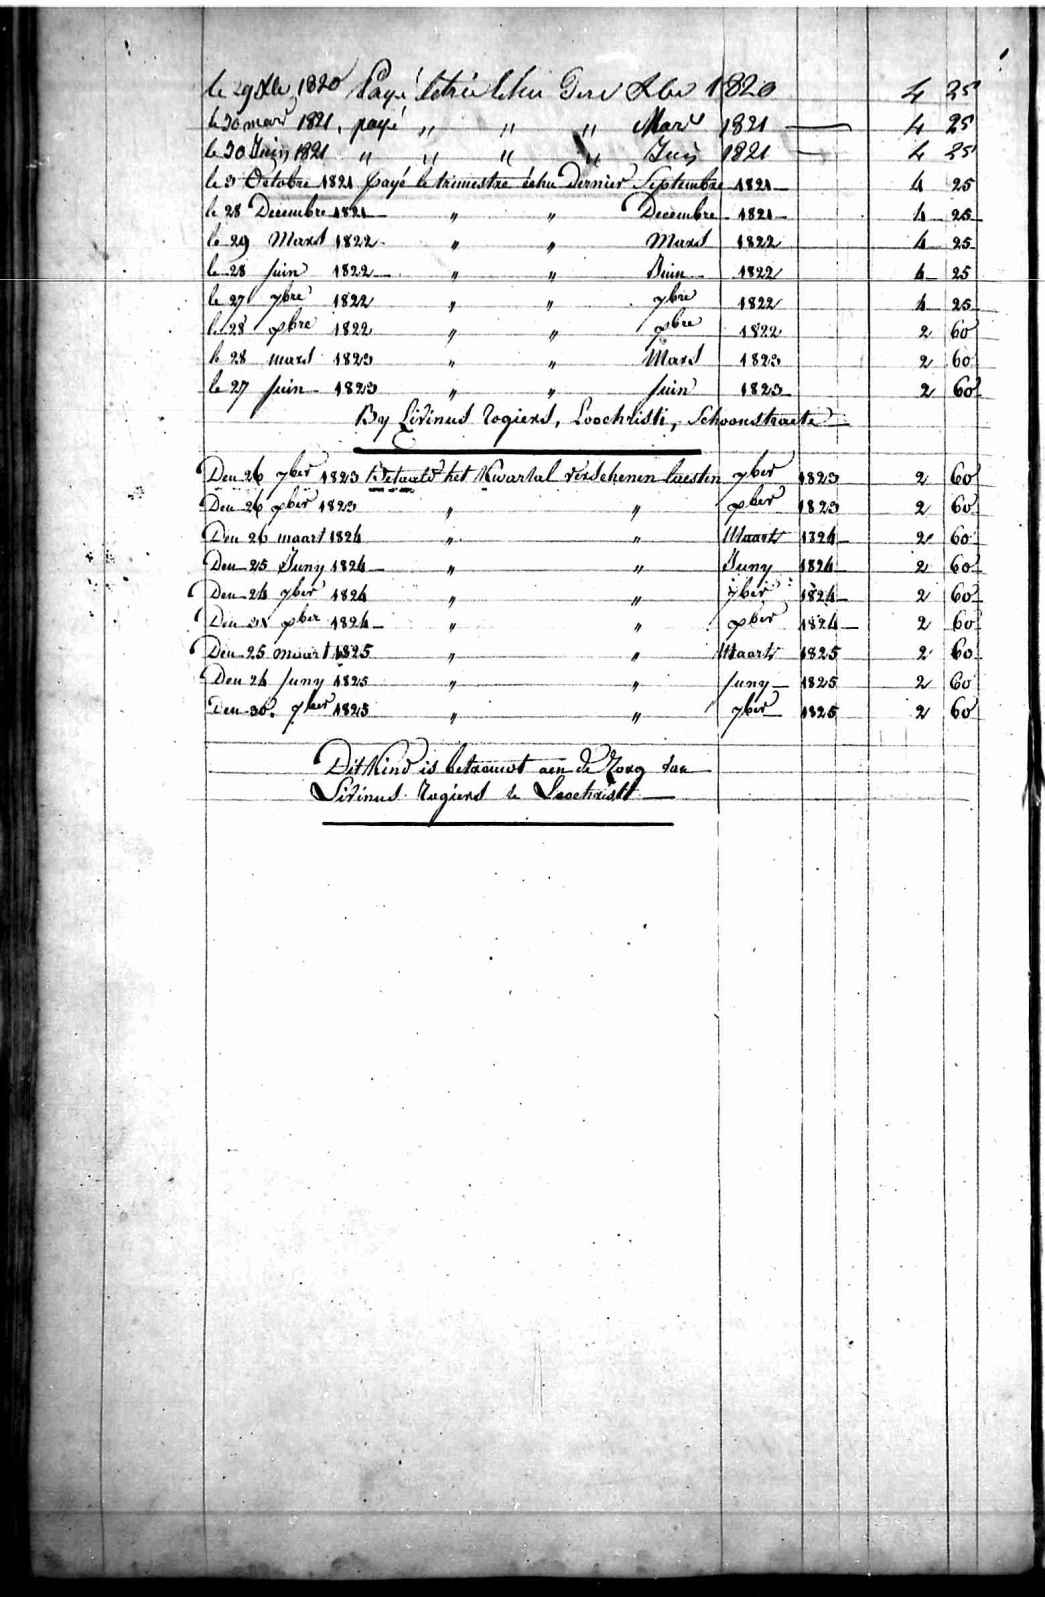 le 29 Xbre 1820 Payé le trie Echu Der Xbre 1820 4 25
le 30 mars 1821, payé " " " Mars 1821 — 4 25
le 30 Juin 1821 " " " " Juin 1821 — 4 25
le 3 Octobre 1821 payé le trimestre échu dernier Septembre 1821 4 25
le 28 Decembre 1821 " " Decembre 1821 4 25
le 29 Mars 1822 " " Mars 1822 4 25
le 28 Juin 1822 " " Juin 1822 4 25
le 27 7bre 1822 " " 7bre 1822 4 25
le 28 Xbre 1822 " " Xbre 1822 2 60
le 28 mars 1823 " " Mars 1823 2 60
le 27 Juin 1823 " " Juin 1823 2 60
By Livinus Rogiers, Loochristi, Schoonstraete
Den 26 7ber 1823 Betaald het Kwartal verschenen laesten 7ber 1823 2 60
Den 26 Xber 1823 " " Xber 1823 2 60
Den 26 maart 1824 " " Maart 1824 2 60
Den 25 Juny 1824 " " Juny 1824 2 60
Den 24 7ber 1824 " " 7ber 1824 2 60
Den Xber 1824 " " Xber 1824 2 60
Den 25 maart 1825 " " Maart 1825 2 60
Den 24 Juny 1825 " " Juny 1825 2 60
Den 30. 7ber 1825 " " 7ber 1825 2 60
Dit Kind is betrouwt aen de Zorg van
Livinus Rogiers te Loochristi